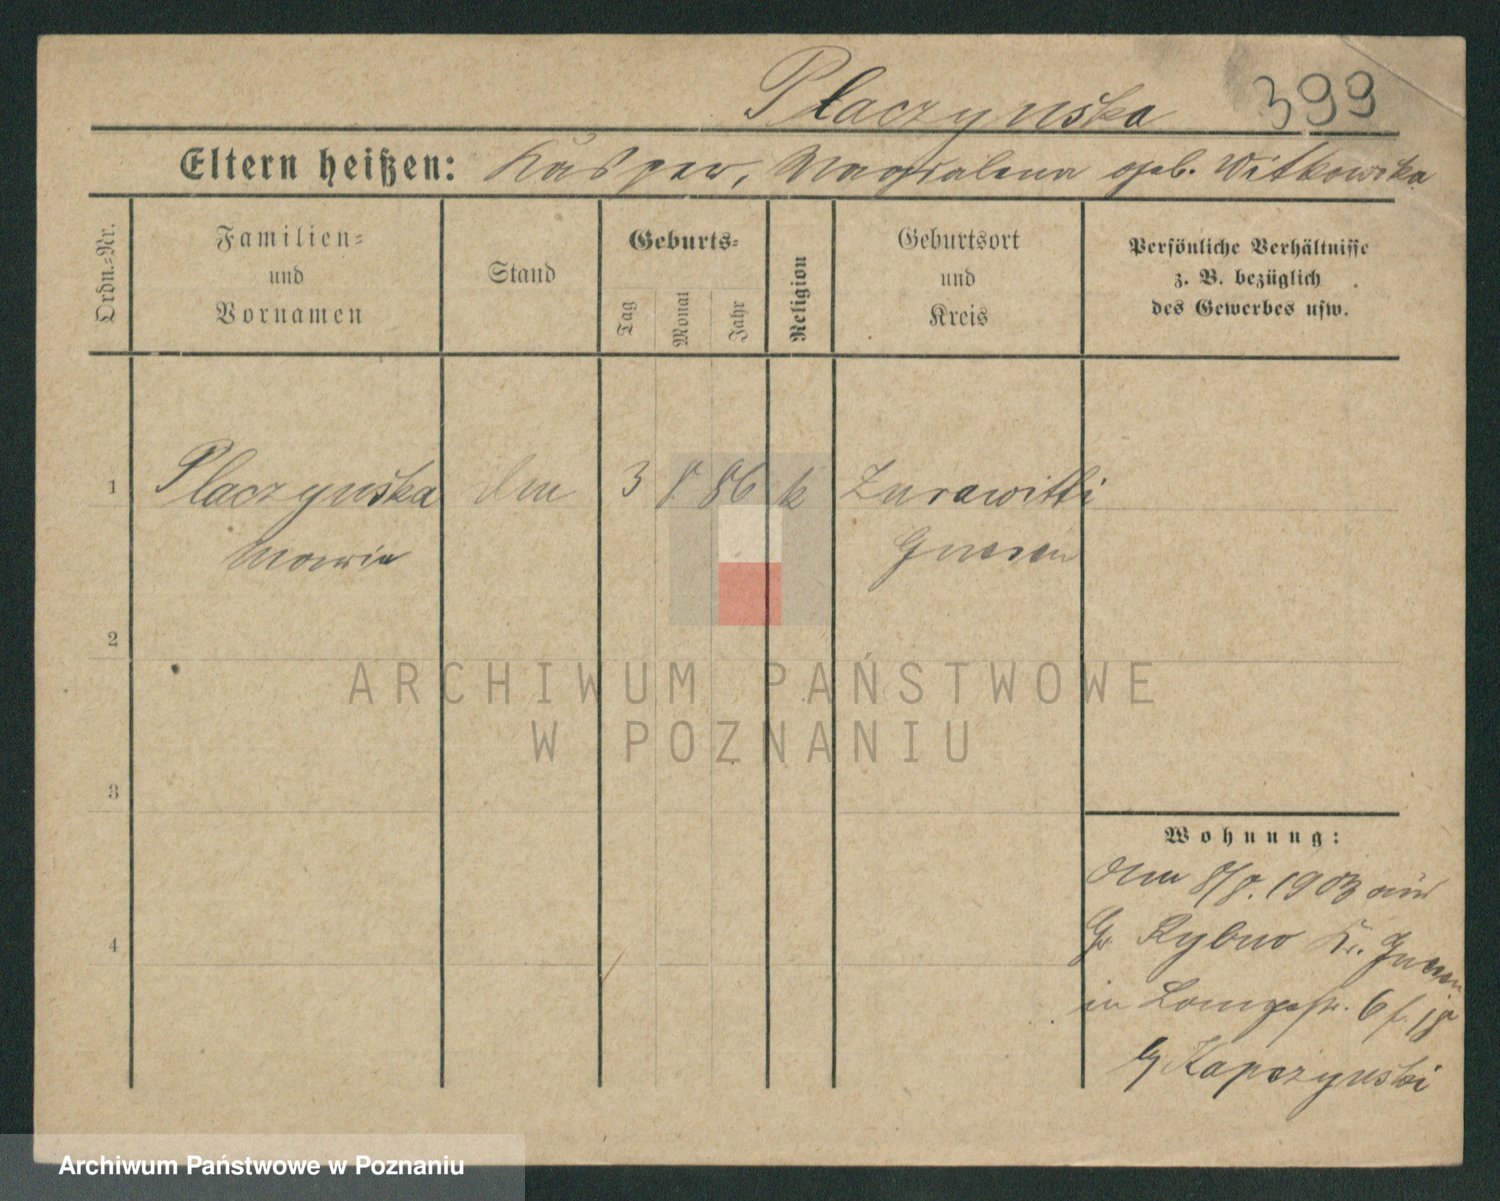 Płaczyńska 399
Eltern heißen: Kasper, Magdalena geb. Witkowska
Ordn.-Nr.
Familien-
und
Vornamen
Stand
Geburts-
Tag
Monat
Jahr
Religion
Geburtsort
und
Kreis
Persönliche Verhältnisse
z. B. bezüglich
des Gewerbes usw.
1 Placzynska 3 8 86 k Zurawitti
Maria Gnesen
2
3
4
Wohnung:
8/8. 1903 aus
Gr Rybno Kr. Gnesen
in Langestr. 6
Kapczynski
ARCHIWUM PAŃSTWOWE
W POZNANIU
Archiwum Państwowe w Poznaniu